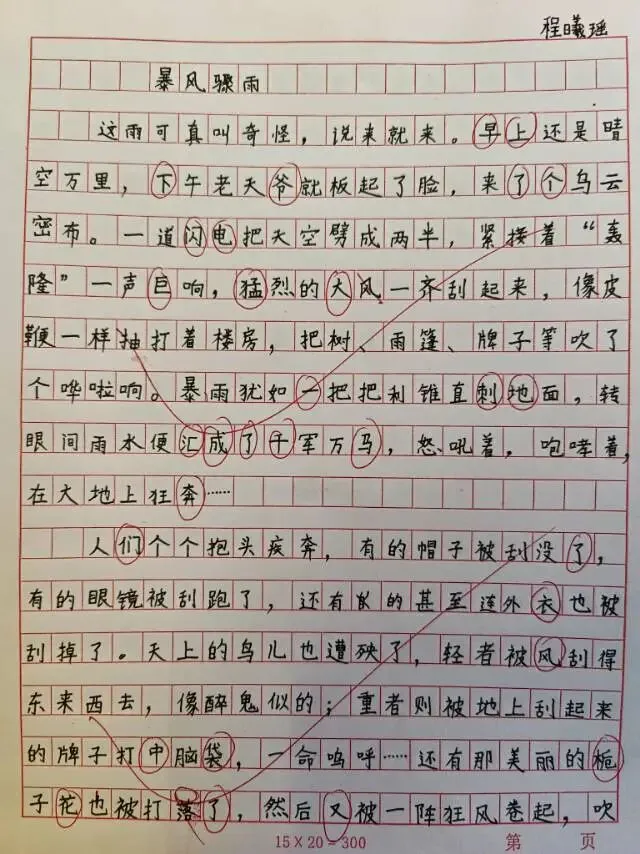 程曦瑶
暴风骤雨
这雨可真叫奇怪，说来就来。早上还是晴
空万里，下午老天爷就板起了脸，来了个乌云
密布。一道闪电把天空劈成两半，紧接着“轰
隆”一声巨响，猛烈的大风一齐刮起来，像皮
鞭一样抽打着楼房，把树、雨篷、牌子等吹了
个哗啦响。暴雨犹如一把把利锥直刺地面，转
眼间雨水便汇成了千军万马，怒吼着，咆哮着，
在大地上狂奔……
人们个个抱头疾奔，有的帽子被刮没了，
有的眼镜被刮跑了，还有的甚至连外衣也被
刮掉了。天上的鸟儿也遭殃了，轻者被风刮得
东来西去，像醉鬼似的；重者则被地上刮起来
的牌子打中脑袋，一命呜呼……还有那美丽的栀
子花也被打落了，然后又被一阵狂风卷起，吹
15×20=300
第 页